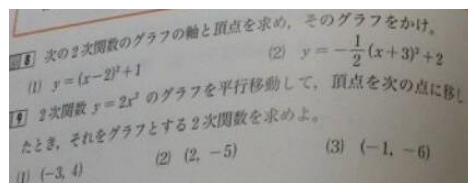 8 次の2次関数のグラフの軸と頂点を求め,そのグラフをかけ。
(1) y=(x-2)²+1 (2) y=-1/2(x+3)²+2
9 2次関数 y=2x² のグラフを平行移動して,頂点を次の点に移し
たとき,それをグラフとする2次関数を求めよ。
(1) (-3, 4) (2) (2, -5) (3) (-1, -6)